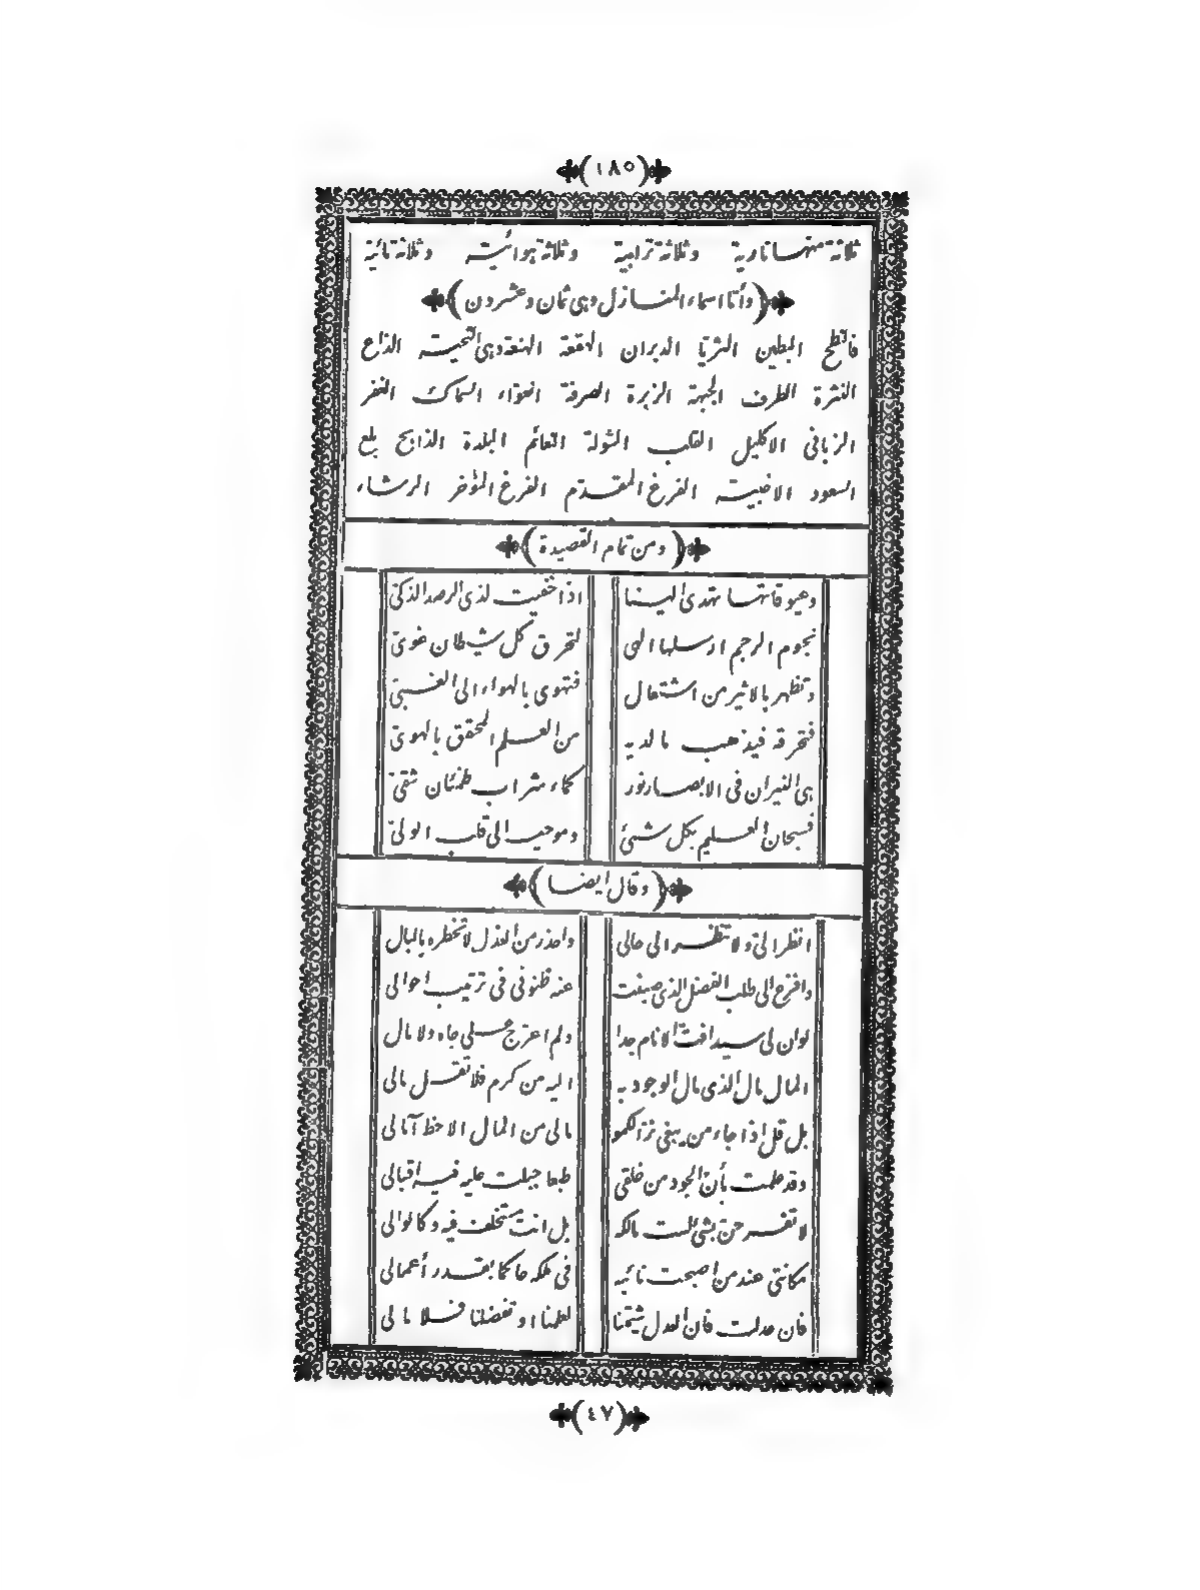 (١٨٥)
ثلاثة منها نارية وثلاثة ترابية وثلاثة هوائية وثلاثة مائية
(وأما اسماء المنازل وهى ثمان وعشرون)
فالنطح البطين الثريا الدبران الهقعة الهنعة وهى التحية الذراع
النثرة الطرف الجبهة الزبرة الصرفة العوّاء السماك الغفر
الزبانى الاكليل القلب الشولة النعائم البلدة الذابح بلع
السعود الاخبية الفرغ المقدّم الفرغ المؤخر الرشاء
(ومن تمام القصيدة)
وعيوقاتها تهدى الينا اذا خفيت لذى الرصد الذكىّ
نجوم الرجم ارسلها الهى لتحرق كل شيطان غوىّ
وتظهر بالاثير من اشتعال فتهوى بالهواء الى الغبىّ
فتحرقه فيذهب مالديه من العلم المحقق بالهوىّ
هى النيران فى الابصار نور كماء شراب ظمئان شقىّ
فسبحان العليم بكل شىء وموحيه الى قلب الولىّ
(وقال ايضا)
انظر الىّ ولا تنظر الى حالى واحذر من العذل لا تخطره بالبال
وافزع الى طلب الفضل الذى صبغت عنه ظنونى فى ترتيب احوالى
لوان لى سيدا فتّ الانام جدا ولم اعرّج على جاه ولا مال
المال مال الذى مال الوجود به اليه من كرم فلا تقل مالى
بل قل اذا جاء من يبغى نزالكمو مالى من المال الا حظ آمالى
وقد علمت بأن الجود من خلقى طبعا جبلت عليه فيه اقبالى
لا تفرحنّ بشئ لست مالكه بل انت مستخلف فيه وكالوالى
مكانتى عند من اصبحت نائبه فى ملكه حاكما بقدر أعمالى
فان عدلت فان العدل شيمتنا لعلمنا او تفضلنا فلا مالى
(٤٧)